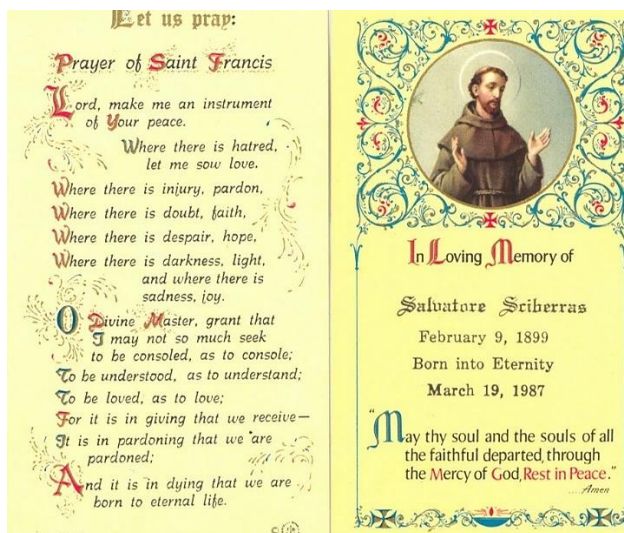 Let us pray:
Prayer of Saint Francis
Lord, make me an instrument
of Your peace.
Where there is hatred,
let me sow love.
Where there is injury, pardon,
Where there is doubt, faith,
Where there is despair, hope,
Where there is darkness, light,
and where there is
sadness, joy.
O Divine Master, grant that
I may not so much seek
to be consoled, as to console;
To be understood, as to understand;
To be loved, as to love;
For it is in giving that we receive—
It is in pardoning that we are
pardoned;
And it is in dying that we are
born to eternal life.
©
In Loving Memory of
Salvatore Sciberras
February 9, 1899
Born into Eternity
March 19, 1987
"May thy soul and the souls of all
the faithful departed, through
the Mercy of God, Rest in Peace."
....Amen